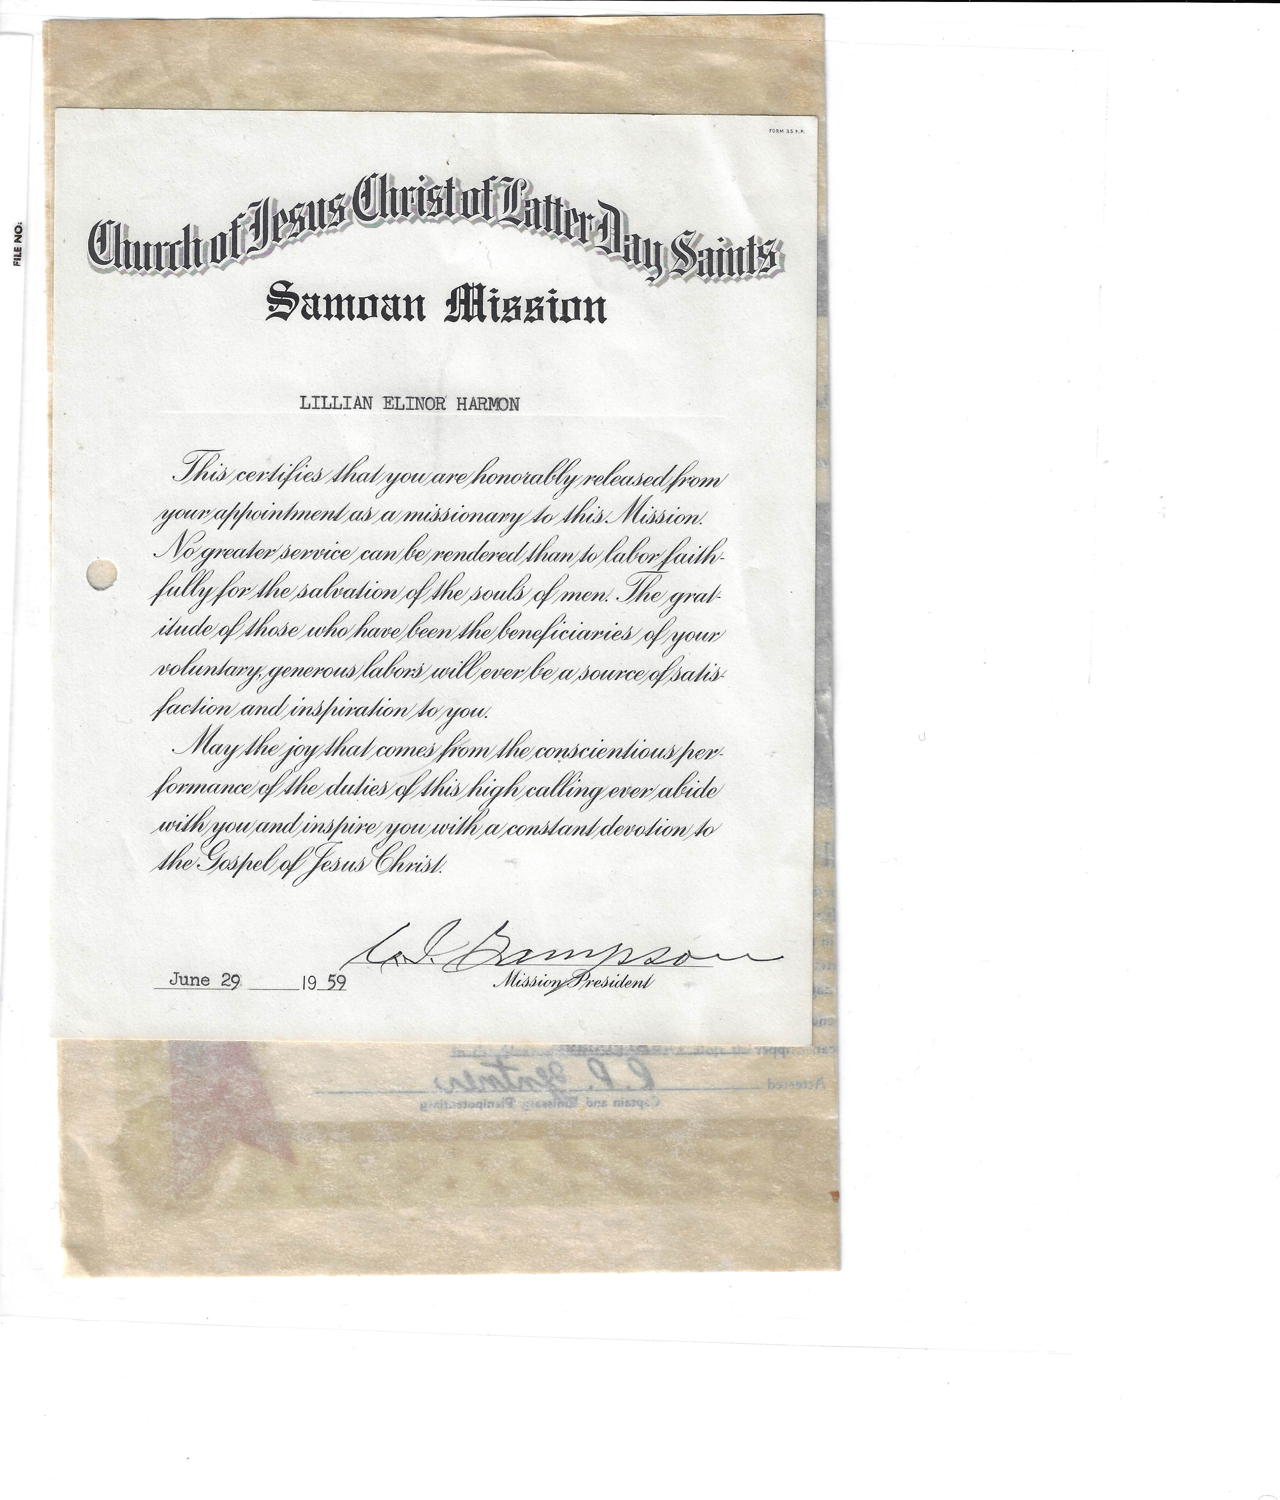 FILE NO:
FORM 35 P.P.
Church of Jesus Christ of Latter Day Saints
Samoan Mission
LILLIAN ELINOR HARMON
This certifies that you are honorably released from
your appointment as a missionary to this Mission.
No greater service can be rendered than to labor faith-
fully for the salvation of the souls of men. The grat-
itude of those who have been the beneficiaries of your
voluntary, generous labors will ever be a source of satis-
faction and inspiration to you.
May the joy that comes from the conscientious per-
formance of the duties of this high calling ever abide
with you and inspire you with a constant devotion to
the Gospel of Jesus Christ.
June 29 1959
Mission President
Attested
Captain and Emissary Plenipotentiary